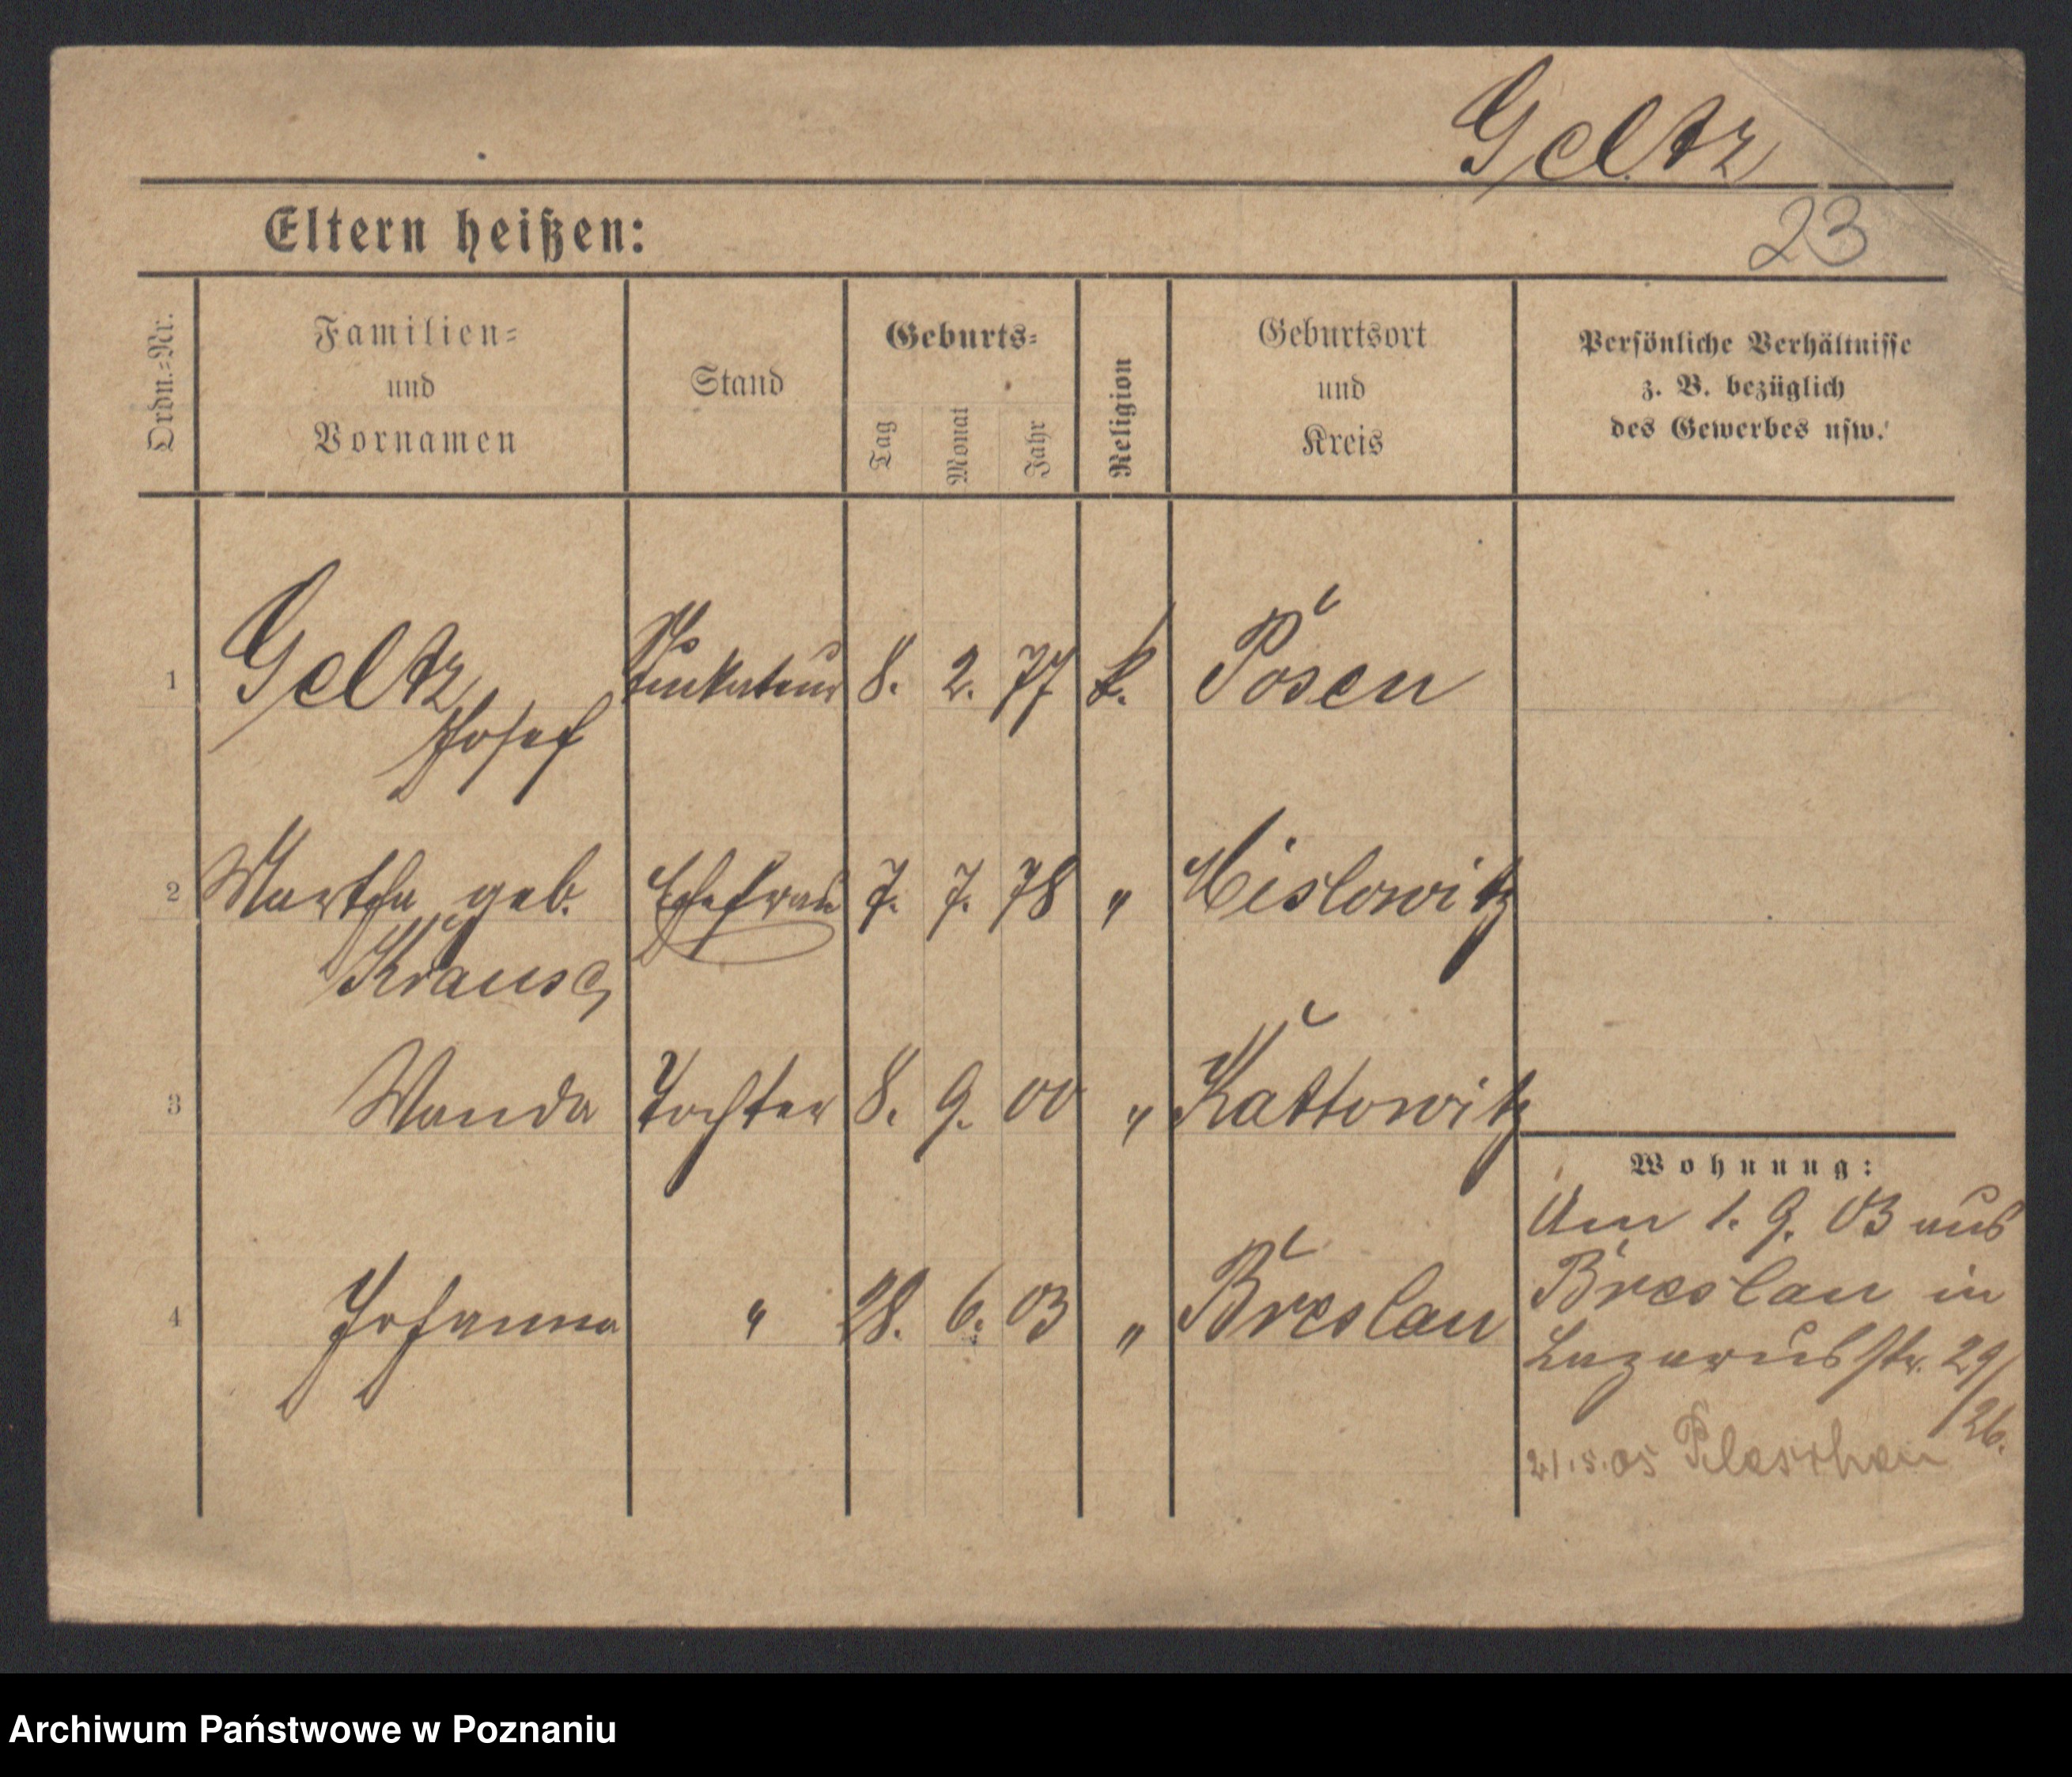 Geltz
23
Eltern heißen:
Ordn.-Nr.
Familien-
und
Vornamen
Stand
Geburts-
Tag
Monat
Jahr
Religion
Geburtsort
und
Kreis
Persönliche Verhältnisse
z. B. bezüglich
des Gewerbes usw.
1 Geltz 8. 2. 77 k. Posen
Josef
2 Martha geb. Ehefrau 7. 7. 78 " Mislowitz
Krause
3 Wanda Tochter 8. 9. 00 " Kattowitz
4 Johanna " 28. 6. 03 " Breslau
Wohnung:
Am 1. 9. 03 aus
Breslau in
Lazarusstr. 29/
26.
21.5.05
Archiwum Państwowe w Poznaniu